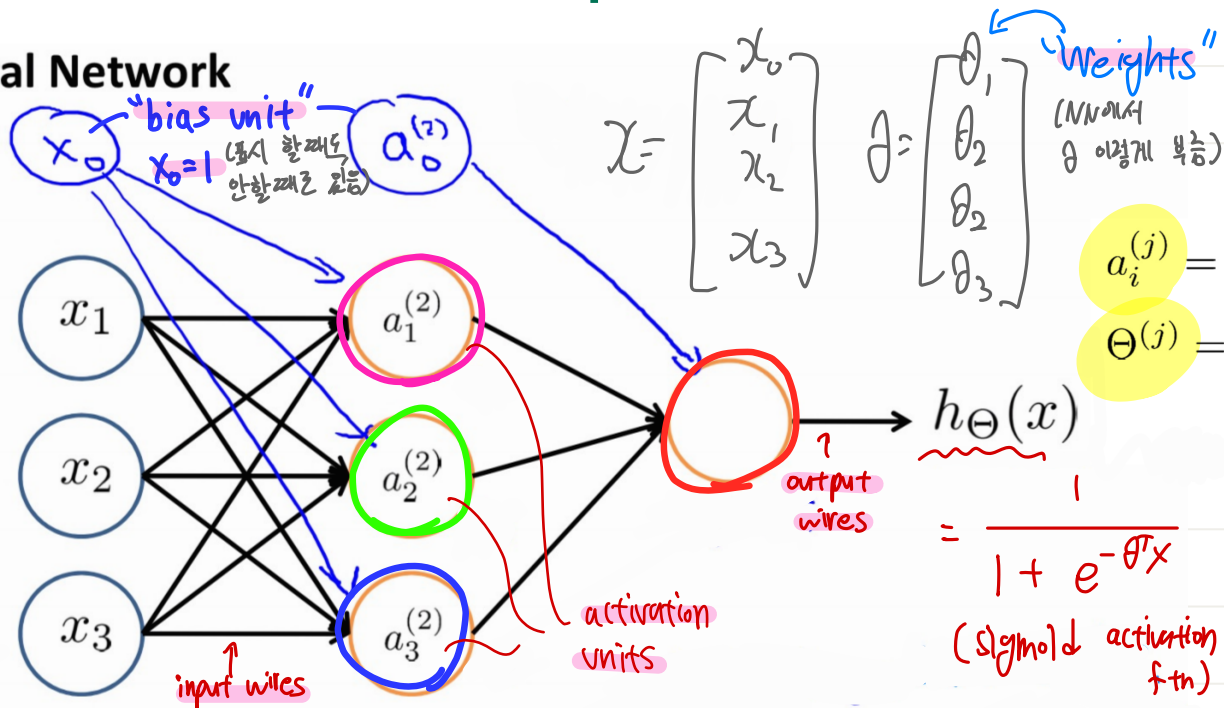 al Network
"bias unit"
x₀
x₀=1 (표시 할때도
안할때도 있음)
a₀⁽²⁾
x = [x₀ x₁ x₂ x₃]
θ = [θ₁ θ₂ θ₂ θ₃]
"Weights"
(NN에서
θ 이렇게 부름)
aᵢ⁽ʲ⁾ =
Θ⁽ʲ⁾ =
x₁
a₁⁽²⁾
x₂
a₂⁽²⁾
x₃
a₃⁽²⁾
h_Θ(x)
output
wires
= 1 / (1 + e^(-θᵀx))
(sigmoid activation
ftn)
activation
units
input wires